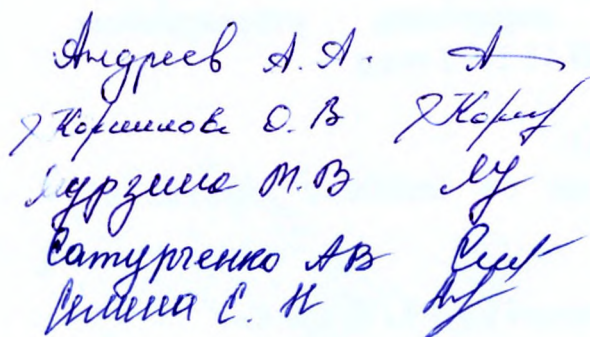 Андреев А. А.
Корнилова О. В
Мурзина М. В
Сатурченко АВ
Силина С. Н